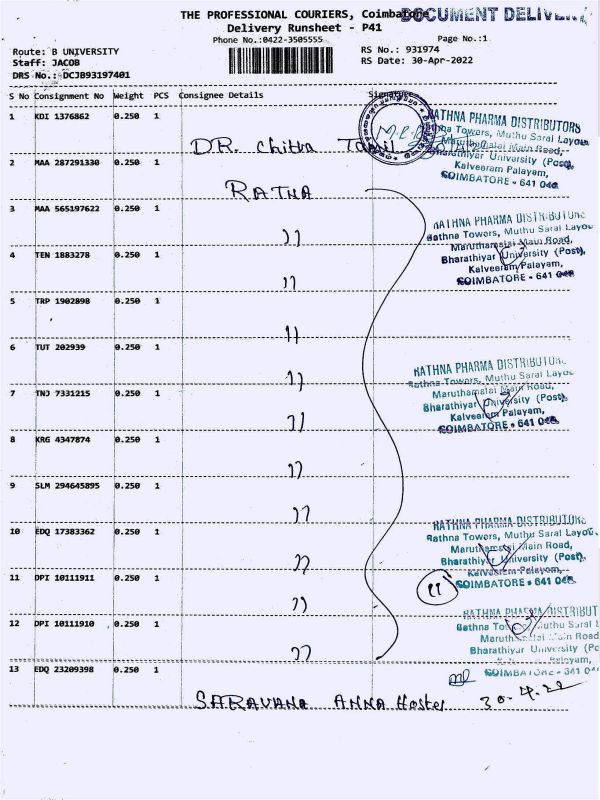 THE PROFESSIONAL COURIERS, Coimbatore
DOCUMENT DELIVERY
Delivery Runsheet - P41
Phone No.:0422-3505555 Page No.:1
Route: B UNIVERSITY RS No.: 931974
Staff: JACOB RS Date: 30-Apr-2022
DRS No.: DCJB93197401
S No Consignment No Weight PCS Consignee Details Signature
1 KDI 1376862 0.250 1
DR. Chitra Tamil
RATHNA PHARMA DISTRIBUTORS
Rathna Towers, Muthu Saral Layout
Maruthamalai Main Road,
Bharathiyar University (Post),
Kalveeram Palayam,
COIMBATORE - 641 046
2 MAA 287291330 0.250 1
RATNA
3 MAA 565197622 0.250 1
"
RATHNA PHARMA DISTRIBUTORS
Rathna Towers, Muthu Saral Layou
Maruthamalai Main Road,
Bharathiyar University (Post),
Kalveeram Palayam,
COIMBATORE - 641 046
4 TEN 1883278 0.250 1
"
5 TRP 1902898 0.250 1
"
6 TUT 202939 0.250 1
"
RATHNA PHARMA DISTRIBUTORS
Rathna Towers, Muthu Saral Layou
Maruthamalai Main Road,
Bharathiyar University (Post),
Kalveeram Palayam,
COIMBATORE - 641 046
7 TNJ 7331215 0.250 1
"
8 KRG 4347874 0.250 1
"
9 SLM 294645895 0.250 1
"
10 EDQ 17383362 0.250 1
"
RATHNA PHARMA DISTRIBUTORS
Rathna Towers, Muthu Saral Layou
Maruthamalai Main Road,
Bharathiyar University (Post),
Kalveeram Palayam,
COIMBATORE - 641 046
11 DPI 10111911 0.250 1
"
11
12 DPI 10111910 0.250 1
"
RATHNA PHARMA DISTRIBUT
Rathna Muthu Saral L
Maruthamalai Main Road
Bharathiyar University (Po
COIMBATORE - 641 04
13 EDQ 23209398 0.250 1
SARAVANA ANNA Hostel
30-4-22